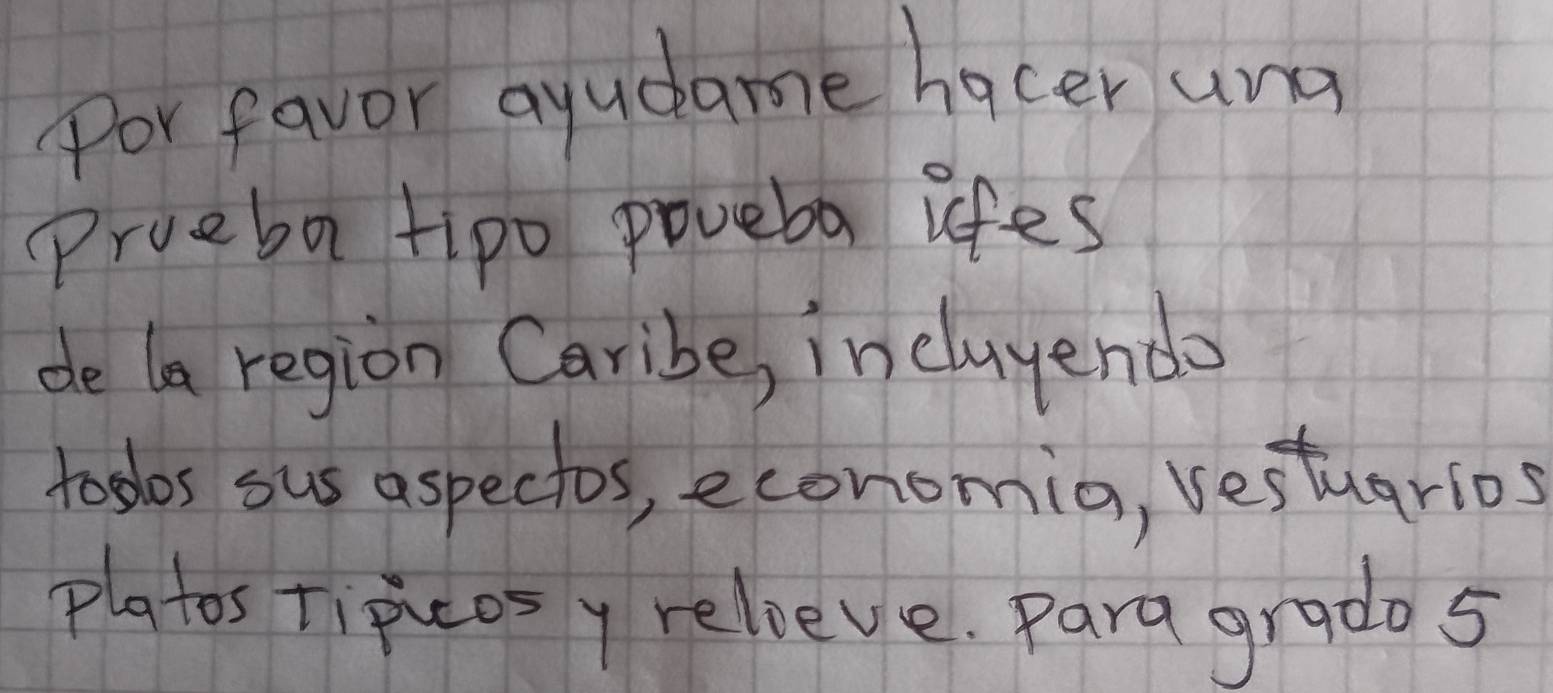 Por favor ayudame hacer una
Prueba tipo prueba icfes
de la región Caribe, incluyendo
todos sus aspectos, economia, vestuarios
Platos Tipicos y relieve. Para grado 5